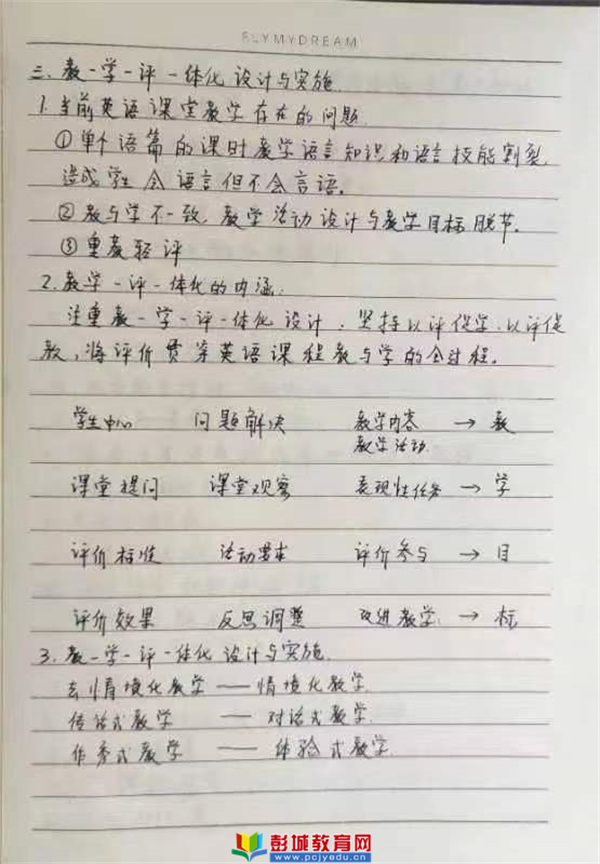 FLYMYDREAM
三、教-学-评-体化设计与实施
1.当前英语课堂教学存在的问题
①单个语篇的课时教学语言知识和语言技能割裂,
造成学生会语言但不会言语。
②教与学不一致,教学活动设计与教学目标脱节。
③重教轻评
2.教学-评-体化的内涵:
注重教-学-评-体化设计,坚持以评促学,以评促
教,将评价贯穿英语课程教与学的全过程。
学生中心 问题解决 教学内容 → 教
教学活动
课堂提问 课堂观察 表现性任务 → 学
评价标准 活动要求 评价参与 → 目
评价效果 反思调整 改进教学 → 标
3.教-学-评-体化设计与实施
去情境化教学——情境化教学
传话式教学——对话式教学
作秀式教学——体验式教学
彭城教育网
www.pcjyedu.cn